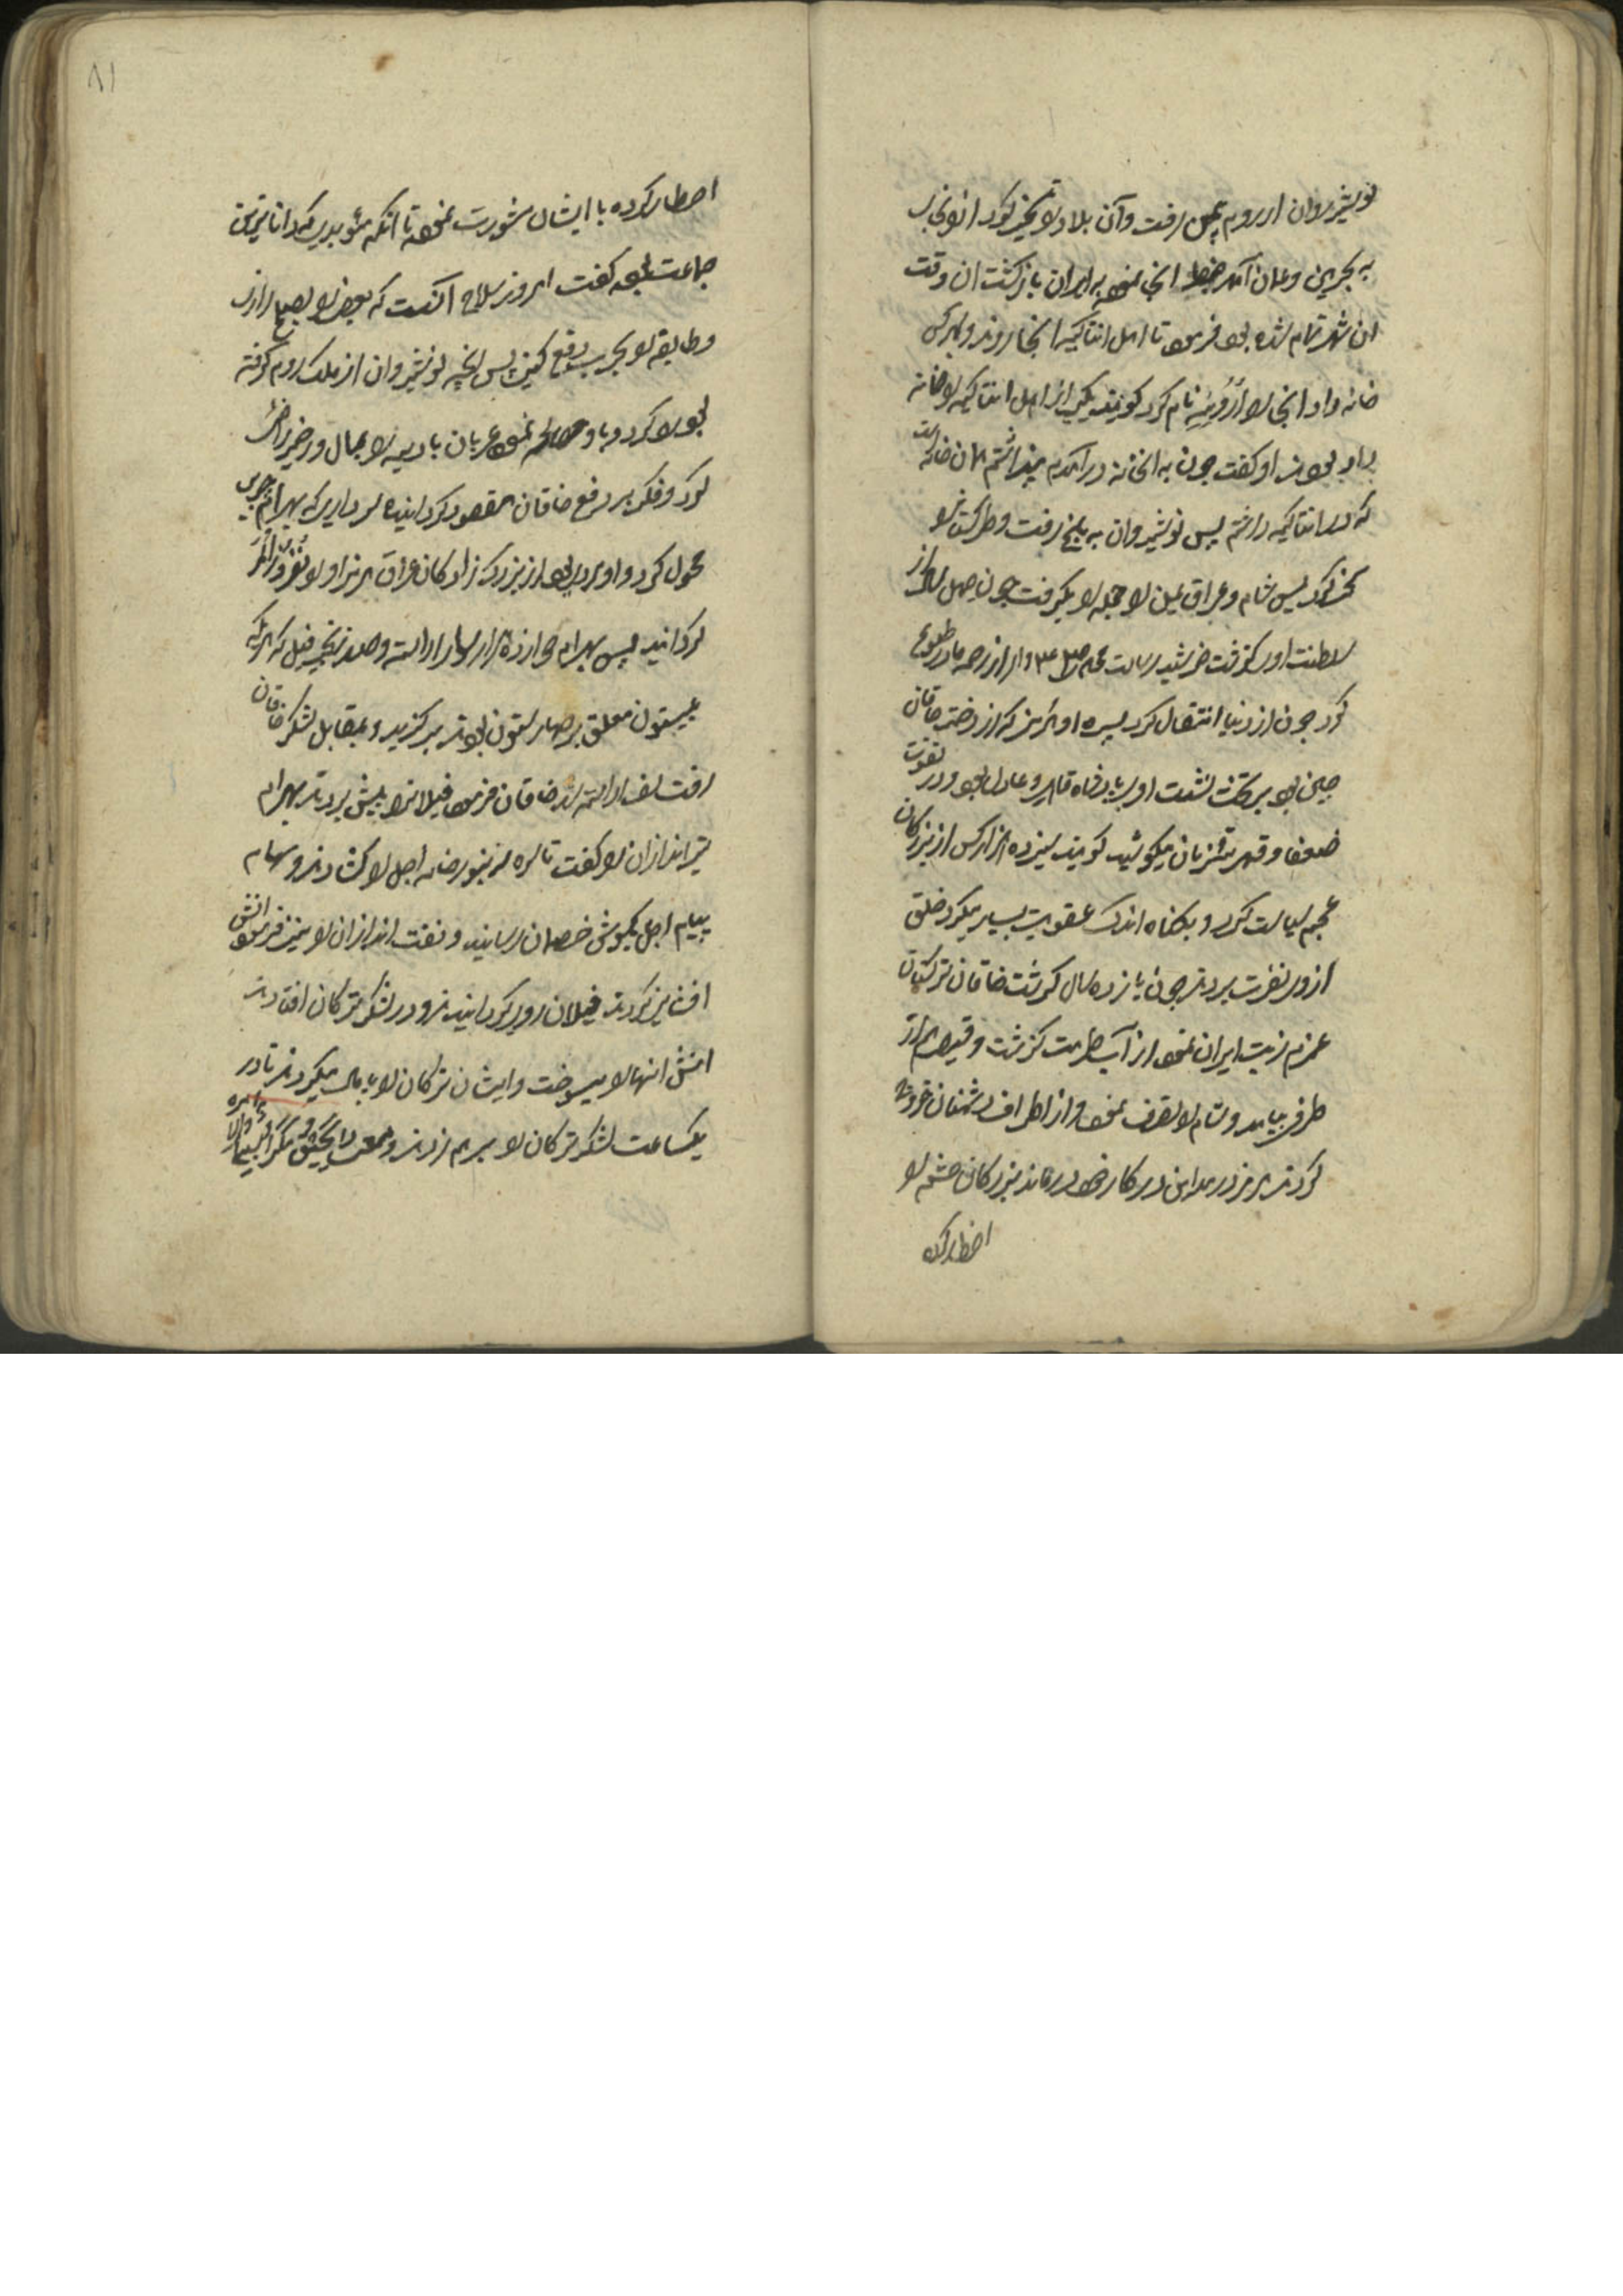 نوشیروان از روم بیمن رفت و آن بلاد را تسخیر کرد از آنجا
به بحرین و عمان آمد ضبط آنجا نموده به ایران بازگشت ان وقت
ان شهر تمام شده بود فرمود تا اهل انتاکیه انجا روند و بهر کس
خانه داد و انجا را رُومِیَه نام کرد گویند یکی از اهل انتاکیه را خانه
داد بودند او گفت چون به ان خانه درآمدم پنداشتم همان خانه است
که در انتاکیه داشتم پس نوشیروان به بلخ رفت و ترکستان را
مسخر کرد پس شام و عراق یمن را جمله را بگرفت چون چهل سال از
سلطنت او بگذشت خورشید رسالت محمد از رحم مادر طلوع
کرد چون از دنیا انتقال کرد پسر او هرمز که از دختر خاقان
چین بود بر تخت نشست او پادشاه قاهر و عادل بود و در تقویت
ضعفا و قهر متمردان میکوشید گویند سیزده هزار کس از بزرگان
عجم سیاست کرد و بگناه اندک عقوبت بسیار میکرد خلق
ازو نفرت بردند چون یازده سال گذشت خاقان ترکستان
عزم نیت ایران نمود از آب گذشت و قیصر هم از
طرفی بیامد و شام را تصرف نمود و از اطراف دشمنان خروج
کردند هرمز در مداین در کار خود درماند بزرگان حشم را
احضار کرده
۸۱
احضار کرده با ایشان مشورت نموده تا آنکه موبدی که داناترین
جماعت بود گفت امروز صلاح آنست که بعضی را بصلح دارند
و طایفه را بحرب دفع کنند پس آنچه نوشیروان از ملک روم گرفته
بود رد کرد و با او مصالحه نمود عربان بادیه را بمال و زر خیر راضی
کرد و فکر بر دفع خاقان مقصود گردانیده سرداری که بهرام چوبین
محول کرد و او مردی بود از بزرگ زادگان عراق هرمز او را
گردانید پس بهرام دوازده هزار سوار آراسته و صد زنجیر فیل که هر یکی
بیستون معلق بر چهار ستون بودند برگزید و بمقابل لشکر خاقان
رفت صف آراسته شد خاقان فرمود فیلانرا پیش بردند بهرام
تیر اندازان را گفت تا اجل را گشادند و سهام
پیام اجل بگوش خصمان رسانید و نفت اندازان را نیز فرمود آتش
افشانی کردند فیلان روی گردانیدند و در لشکر ترکان افتادند
آتش آنها را میسوخت و ایشان ترکان را پایمال میکردند تا در
یکساعت لشکر ترکان را برهم زدند